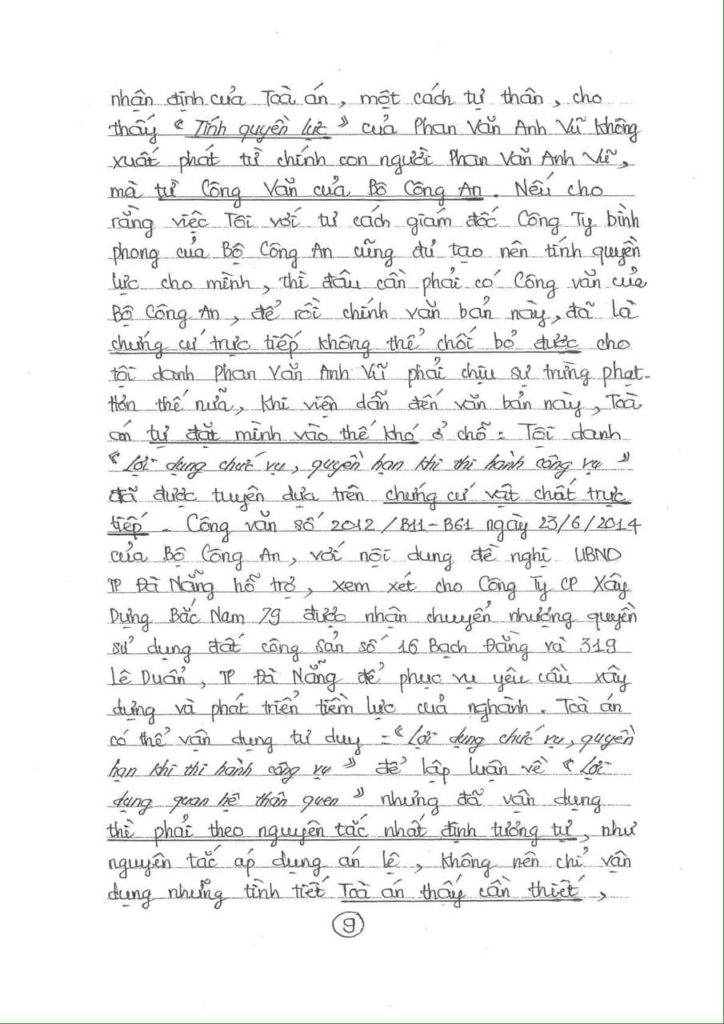 nhận định của Toà án, một cách tự thân, cho
thấy "Tính quyền lực" của Phan Văn Anh Vũ không
xuất phát từ chính con người Phan Văn Anh Vũ,
mà từ Công Văn của Bộ Công An. Nếu cho
rằng việc Tôi với tư cách giám đốc Công Ty bình
phong của Bộ Công An cũng đủ tạo nên tính quyền
lực cho mình, thì đâu cần phải có Công văn của
Bộ Công An, để rồi chính văn bản này, đã là
chứng cứ trực tiếp không thể chối bỏ được cho
tội danh Phan Văn Anh Vũ phải chịu sự trừng phạt.
Hơn thế nữa, khi viện dẫn đến văn bản này, Toà
án tự đặt mình vào thế khó ở chỗ: Tội danh
"Lợi dụng chức vụ, quyền hạn khi thi hành công vụ"
đã được tuyên dựa trên chứng cứ vật chất trực
tiếp - Công văn số 2012/B11-B61 ngày 23/6/2014
của Bộ Công An, với nội dung đề nghị UBND
TP Đà Nẵng hỗ trợ, xem xét cho Công Ty CP Xây
Dựng Bắc Nam 79 được nhận chuyển nhượng quyền
sử dụng đất công sản số 16 Bạch Đằng và 319
Lê Duẩn, TP Đà Nẵng để phục vụ yêu cầu xây
dựng và phát triển tiềm lực của nghành. Toà án
có thể vận dụng tư duy = "Lợi dụng chức vụ, quyền
hạn khi thi hành công vụ" để lập luận về "Lợi
dụng quan hệ thân quen" nhưng đã vận dụng
thì phải theo nguyên tắc nhất định tương tự, như
nguyên tắc áp dụng án lệ, không nên chỉ vận
dụng những tình tiết Toà án thấy cần thiết,
9